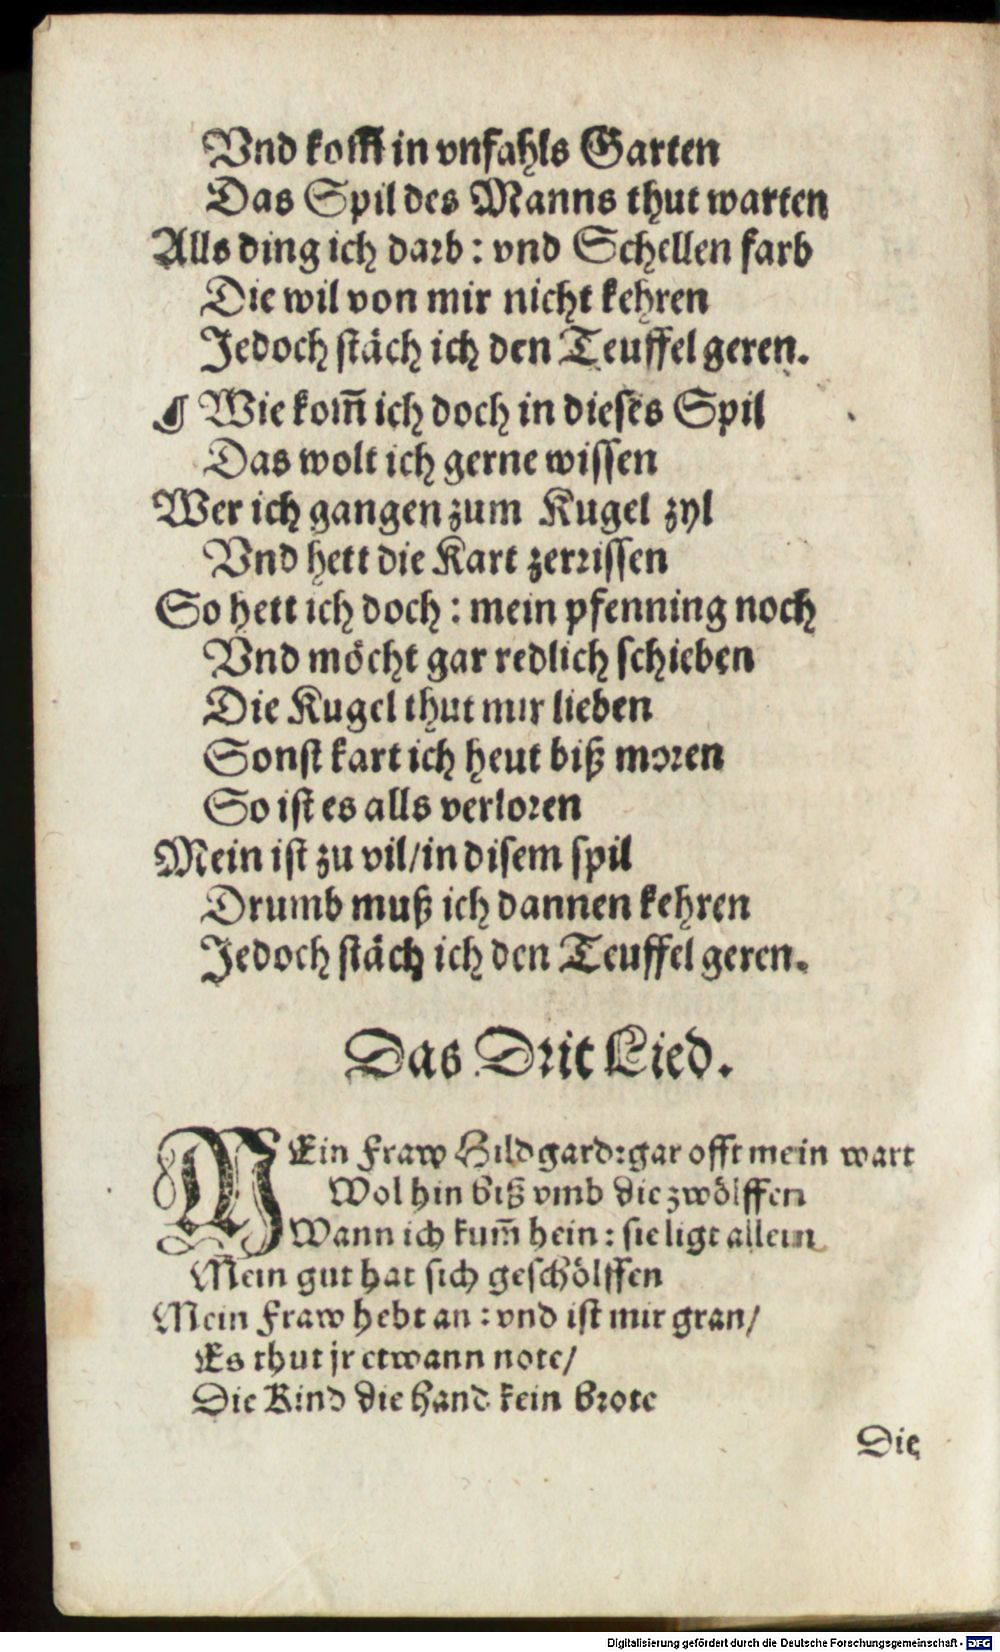 Vnd kom̃ in vnfahls Garten
Das Spil des Manns thut warten
Alls ding ich darb: vnd Schellen farb
Die wil von mir nicht kehren
Jedoch stäch ich den Teuffel geren.
¶ Wie kom̃ ich doch in dieses Spil
Das wolt ich gerne wissen
Wer ich gangen zum Kugel zyl
Vnd hett die Kart zerrissen
So hett ich doch: mein pfenning noch
Vnd möcht gar redlich schieben
Die Kugel thut mir lieben
Sonst kart ich heut biß moren
So ist es alls verloren
Mein ist zu vil/in disem spil
Drumb muß ich dannen kehren
Jedoch stäch ich den Teuffel geren.
Das Drit Lied.
MEin Fraw Hildgard:gar offt mein wart
Wol hin biß vmb die zwölffen
Wann ich kum̃ hein: sie ligt allein
Mein gut hat sich geschölffen
Mein Fraw hebt an: vnd ist mir gran/
Es thut jr etwann note/
Die Kind die hand kein brote
Die
Digitalisierung gefördert durch die Deutsche Forschungsgemeinschaft - DFG